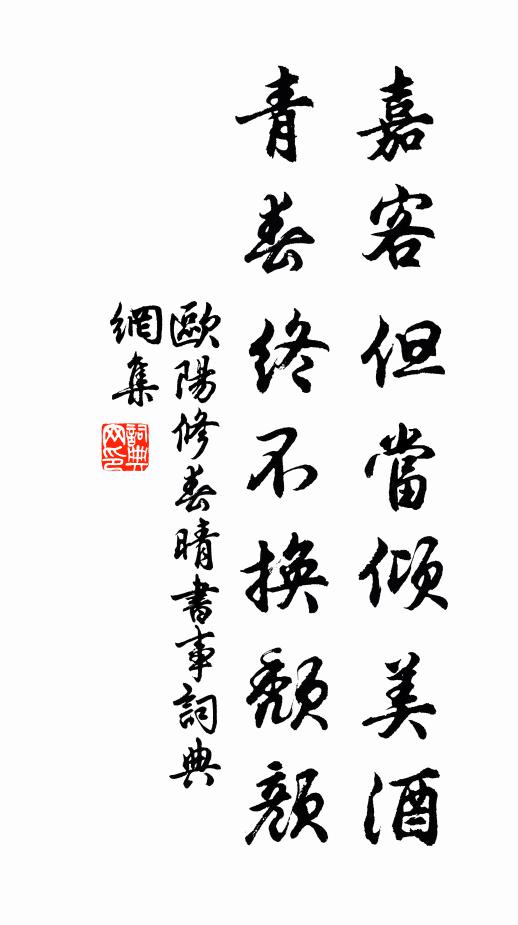 嘉客但當傾美酒
青春終不換頹顏
歐陽修春晴書事詞典
網集
詞典
网印